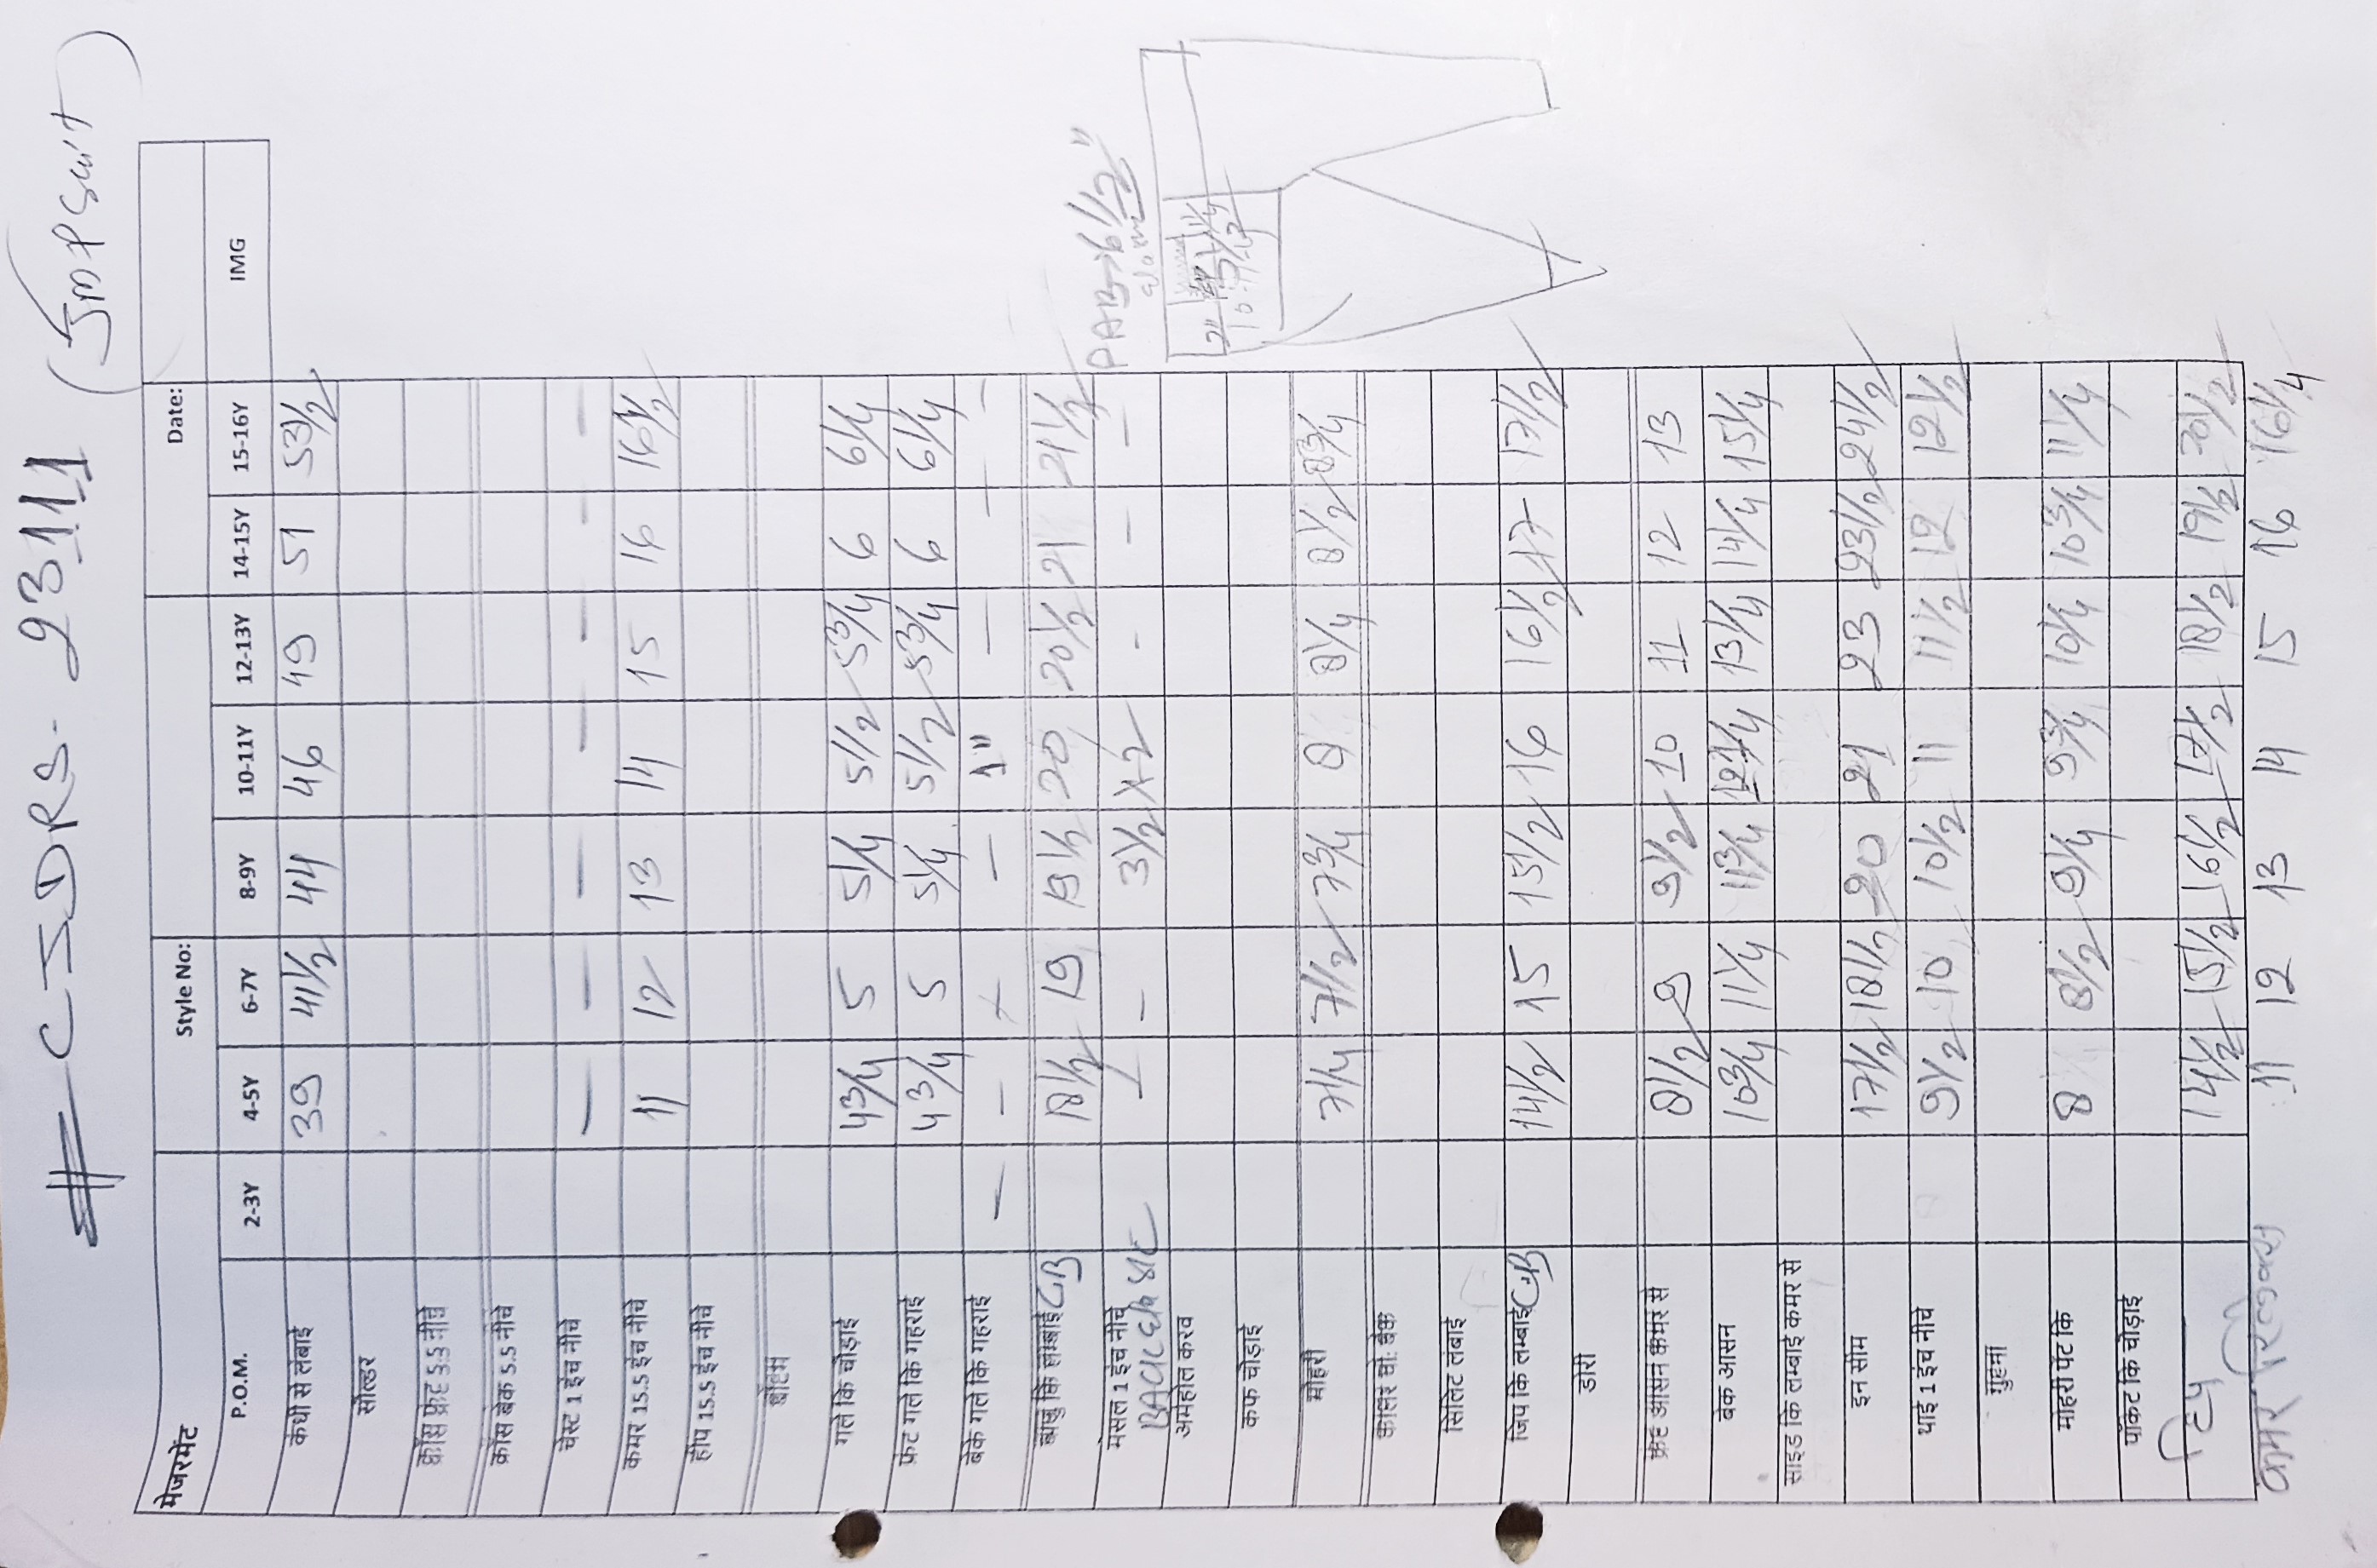 # CJSDRS- 9311 (JmPSuit)
मेजरमेंट Style No: Date:
P.O.M. 2-3Y 4-5Y 6-7Y 8-9Y 10-11Y 12-13Y 14-15Y 15-16Y IMG
कंधी से लंबाई 39 41 1/2 44 46 49 51 53 1/2
सोल्डर
क्रॉस फ्रंट 5.5 नीचे
क्रॉस बेक 5.5 नीचे
चेस्ट 1 इंच नीचे — — — — — — —
कमर 15.5 इंच नीचे 11 12 13 14 15 16 16 1/2
हीप 15.5 इंच नीचे
बॉटम
गले कि चोड़ाई 4 3/4 5 5 1/4 5 1/2 5 3/4 6 6 1/4
फ्रंट गले कि गहराई 4 3/4 5 5 1/4 5 1/2 5 3/4 6 6 1/4
बेक गले कि गहराई — — — 1" — — —
बाजु कि लम्बाई CB 18 1/2 19 19 1/2 20 20 1/2 21 21 1/2
मसल 1 इंच नीचे — — 3 1/2 x 2 - — —
अमहोल करव
कफ चोड़ाई
मोहरी 7 1/4 7 1/2 7 3/4 8 8 1/4 8 1/2 8 3/4
कालर घी: बेक
सिलिट लंबाई
जिप कि लम्बाई CB 14 1/2 15 15 1/2 16 16 1/2 17 17 1/2
डोरी
फ्रंट आसन कमर से 8 1/2 9 9 1/2 10 11 12 13
बेक आसन 10 3/4 11 1/4 11 3/4 12 1/4 13 1/4 14 1/4 15 1/4
साइड कि लम्बाई कमर से
इन सीम 17 1/2 18 1/2 20 21 23 23 1/2 24 1/2
थाई 1 इंच नीचे 9 1/2 10 10 1/2 11 11 1/2 12 12 1/2
गुहना
मोहरी पेंट कि 8 8 1/2 9 1/4 9 3/4 10 1/4 10 3/4 11 1/4
पॉकेट कि चोड़ाई
हिप 14 1/2 15 1/2 16 1/2 17 1/2 18 1/2 19 1/2 20 1/2
कमर 11 12 13 14 15 16 16 1/4
2"